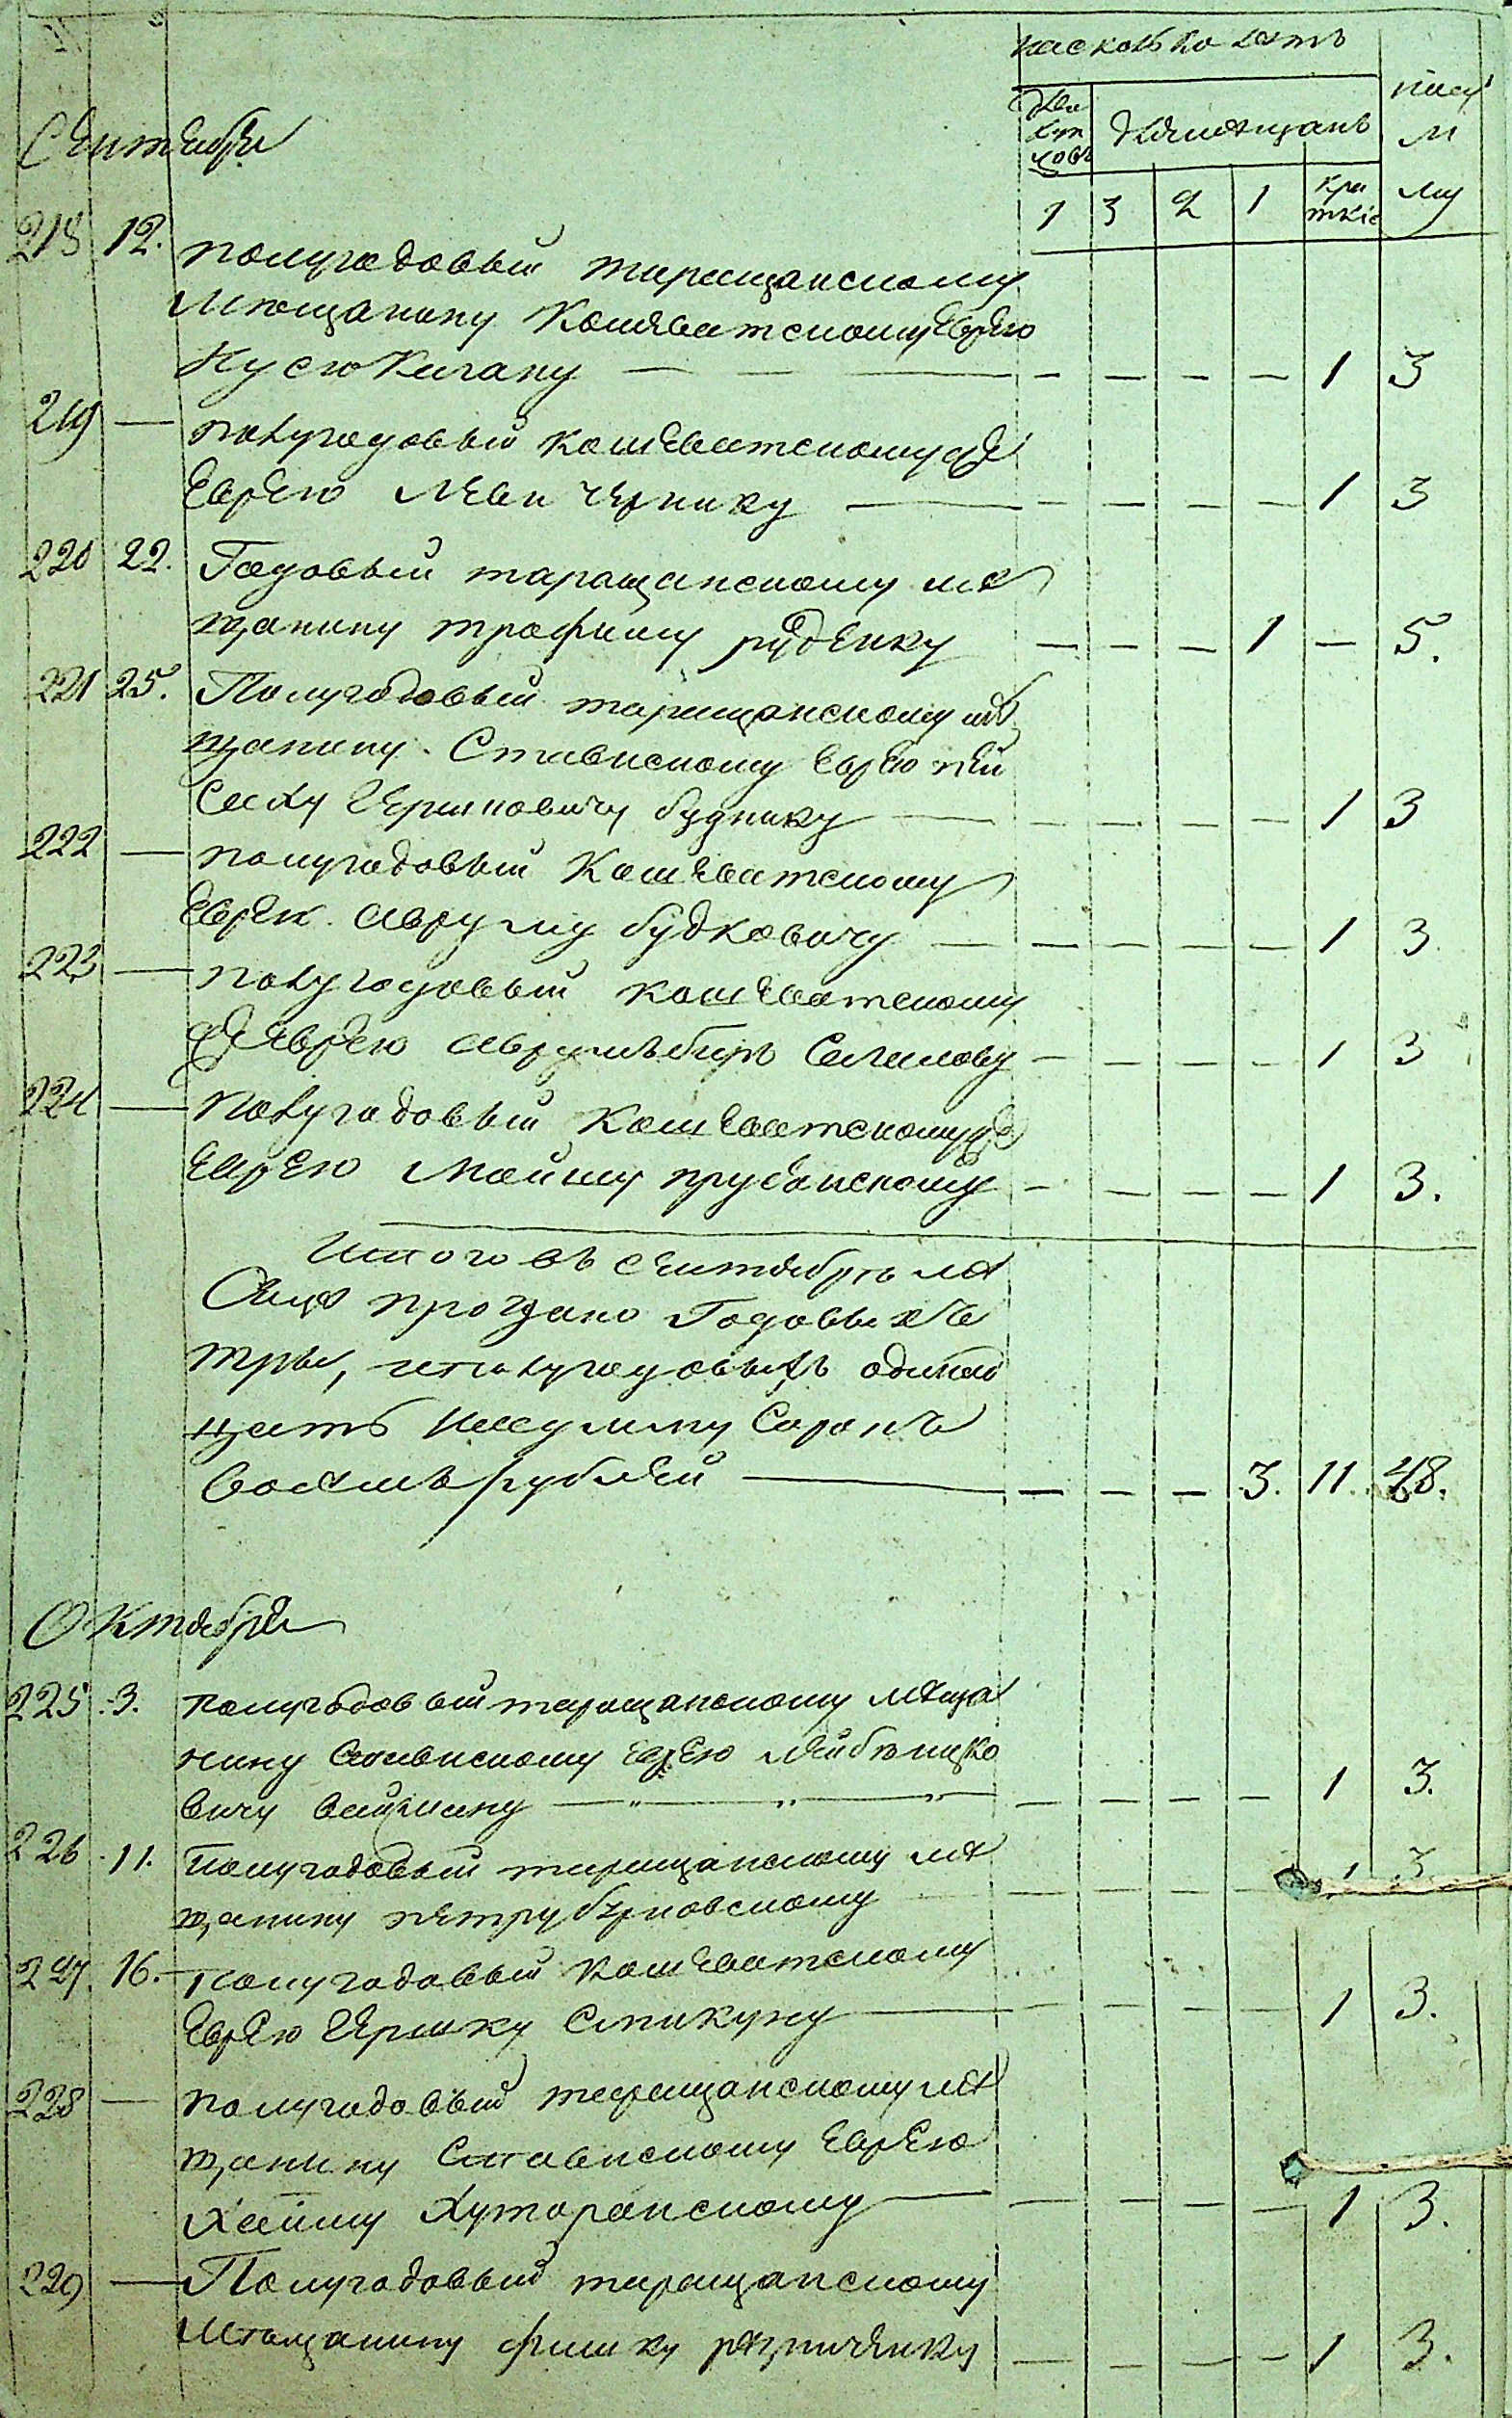 на сколько летъ
Для
куп
цовъ
Для мещанъ
на су
м
му
1 3 2 1 кра
ткіе
Сентября
218 12. полугодовый таращанскому
мѣщанину Кошеватскому Еврею
Нусю Кагану — — — — — — — 1 3
219 — полугодовый кошеватскому
Еврею Леви Чернику — — — — — 1 3
220 22. Годовый таращанскому ме
щанину трофиму руденку — — — 1 — 5.
221 25. Полугодовый таращанскому ме
щанину Ставискому Еврею пей
саху Гершковичу буднику — — — — — 1 3
222 — полугодовый Кошеватскому
Еврею Авруму будковичу — — — — — 1 3
223 — полугодовый кошеватскому
Еврею Аврумъ беръ — — — — 1 3
224 — полугодовый Кошеватскому
Еврею Мошку — — — — 1 3.
Итого въ сентябрѣ ме
сяце продано Годовыхъ
три, полугодовыхъ одинад
цать на сумму Сорокъ
восемь рублей — — — — 3. 11. 48.
Октября
225 3. полугодовый таращанскому меща
нину Ставискому Еврею Лейбѣ ицко
вичу вайцману — — — — 1 3.
226 11. полугодовый таращанскому ме
щанину петру — — — — 1 3
227. 16. полугодовый кошеватскому
Еврею Гершку Спикуну — — — — — 1 3.
228 — полугодовый таращанскому ме
щанину Ставискому Еврею
Хаиму Хуторанскому — — — — — 1 3.
229 — Полугодовый таращанскому
мѣщанину фишку резниченку — — — — 1 3.